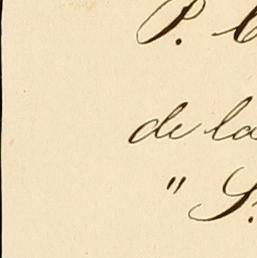 P.
de la
" S.